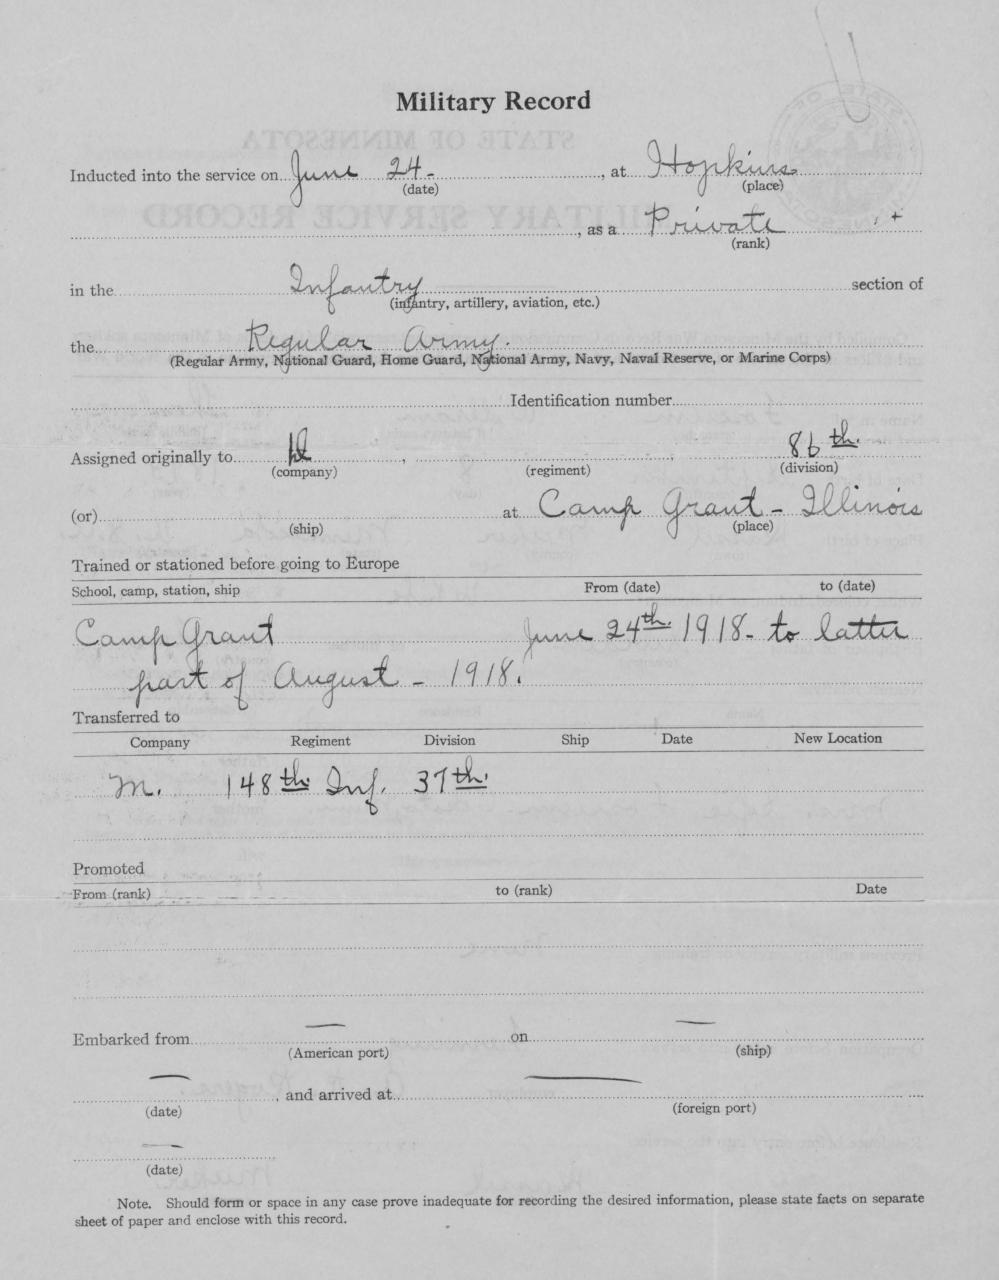 Military Record
Inducted into the service on June 24 - , at Hopkins
(date) (place)
, as a Private
(rank)
in the Infantry section of
(infantry, artillery, aviation, etc.)
the Regular Army.
(Regular Army, National Guard, Home Guard, National Army, Navy, Naval Reserve, or Marine Corps)
Identification number
Assigned originally to , 86th.
(company) (regiment) (division)
(or) at Camp Grant - Illinois
(ship) (place)
Trained or stationed before going to Europe
School, camp, station, ship From (date) to (date)
Camp Grant June 24th. 1918 - to latter
part of August - 1918.
Transferred to
Company Regiment Division Ship Date New Location
M. 148th Inf. 37th.
Promoted
From (rank) to (rank) Date
Embarked from — on —
(American port) (ship)
— , and arrived at —
(date) (foreign port)
—
(date)
Note. Should form or space in any case prove inadequate for recording the desired information, please state facts on separate
sheet of paper and enclose with this record.